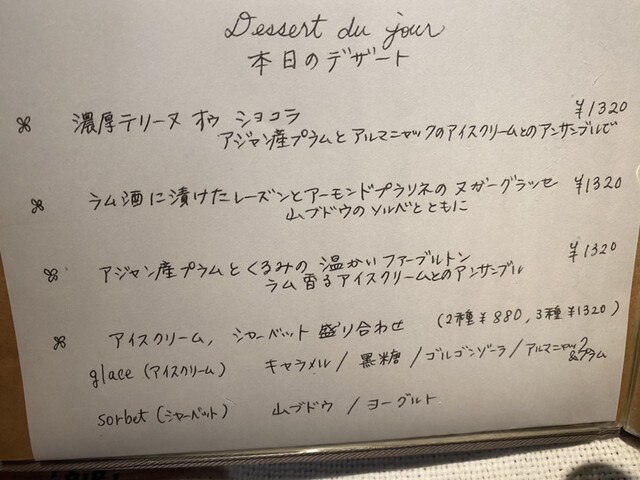 Dessert du jour
本日のデザート
濃厚テリーヌ オゥ ショコラ ¥1320
アジャン産プラムと アルマニャックのアイスクリームとのアンサンブルで
ラム酒に漬けたレーズンとアーモンドプラリネの ヌガーグラッセ ¥1320
山ブドウのソルベとともに
アジャン産プラムとくるみの 温かいファーブルトン ¥1320
ラム香るアイスクリームとのアンサンブル
アイスクリーム, シャーベット 盛り合わせ (2種¥880, 3種¥1320)
glace (アイスクリーム) キャラメル / 黒糖 / ゴルゴンゾーラ / アルマニャック&プラム
sorbet (シャーベット) 山ブドウ / ヨーグルト